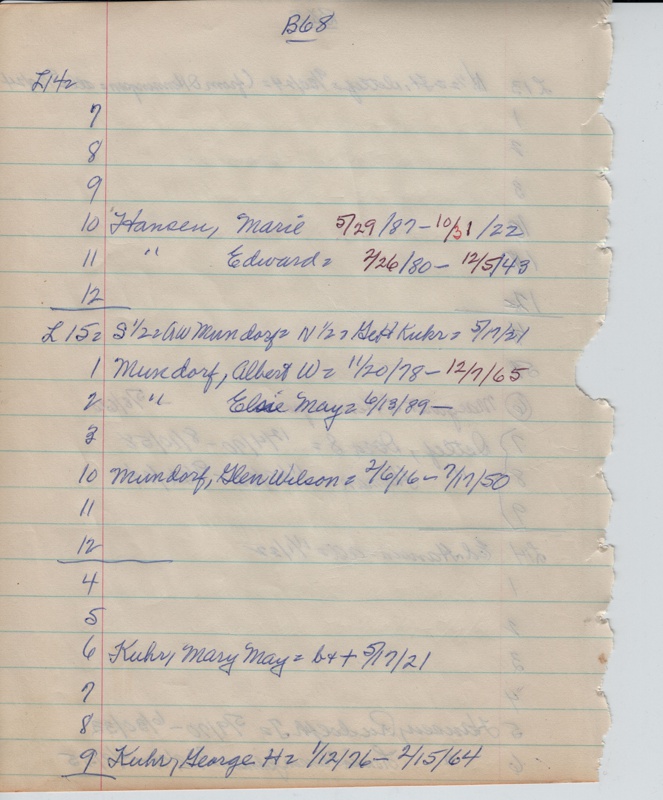 B68
L14=
7
8
9
10 Hansen, Marie 5/29/87-10/31/22
11 " Edward= 2/26/80- 12/5/43
12
L 15= S1/2=AW Mundorf= N 1/2= Kuhr= 5/17/21
1 Mundorf, Albert W= 11/20/78- 12/7/65
2 " Elsie May= 6/13/89-
3
10 Mundorf, Glen Wilson= 2/6/16- 7/17/50
11
12
4
5
6 Kuhr, Mary May= b++ 5/17/21
7
8
9 Kuhr, George H= 1/12/76- 2/15/64